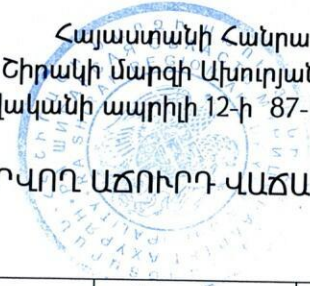 Հայաստանի Հանրա
Շիրակի մարզի Ախուրյան
ականի ապրիլի 12-ի 87-
ՎՈՂ ԱՃՈՒՐԴ ՎԱՃԱ